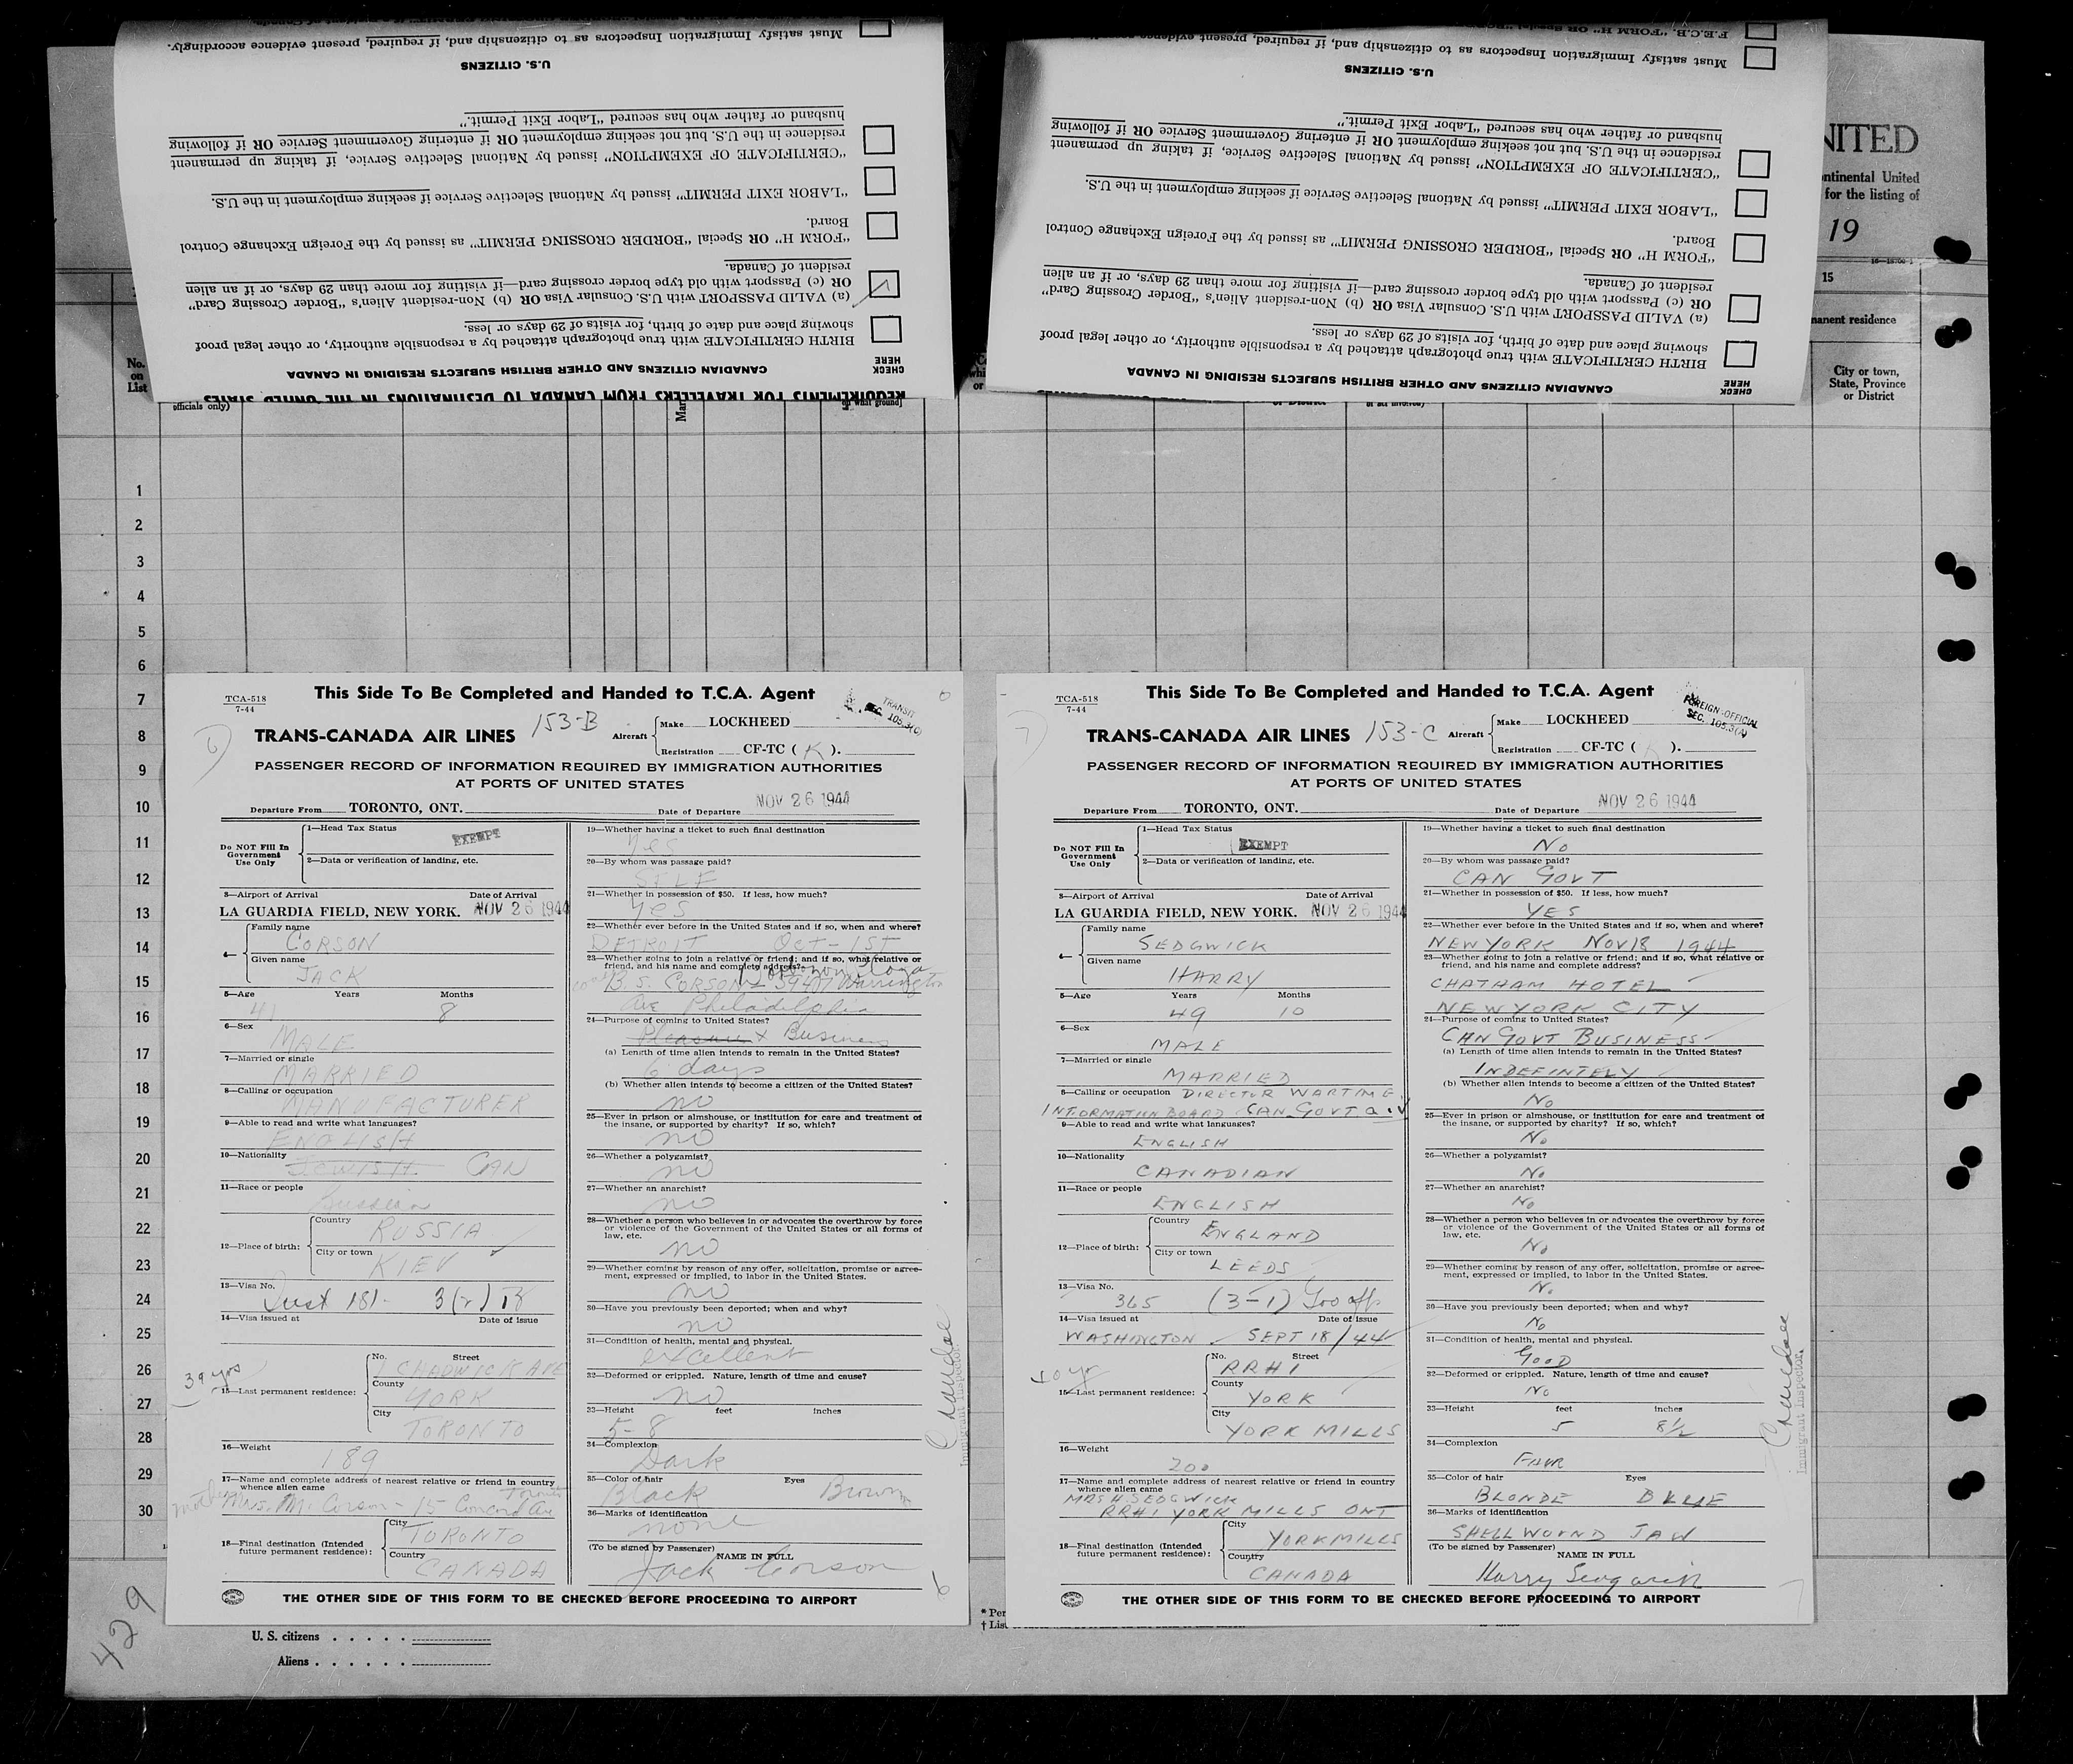 Must satisfy Immigration Inspectors as to citizenship and, if required, present evidence accordingly.
U.S. CITIZENS
husband or father who has secured "Labor Exit Permit."
residence in the U.S. but not seeking employment OR if entering Government Service OR if following
"CERTIFICATE OF EXEMPTION" issued by National Selective Service, if taking up permanent
"LABOR EXIT PERMIT" issued by National Selective Service if seeking employment in the U.S.
Board.
"FORM H" OR Special "BORDER CROSSING PERMIT" as issued by the Foreign Exchange Control
resident of Canada.
OR (c) Passport with old type border crossing card—if visiting for more than 29 days, or if an alien
(a) VALID PASSPORT with U.S. Consular Visa OR (b) Non-resident Alien's "Border Crossing Card"
showing place and date of birth, for visits of 29 days or less.
BIRTH CERTIFICATE with true photograph attached by a responsible authority, or other legal proof
CHECK HERE
CANADIAN CITIZENS AND OTHER BRITISH SUBJECTS RESIDING IN CANADA
REQUIREMENTS FOR TRAVELLERS FROM CANADA TO DESTINATIONS IN THE UNITED STATES
F.E.C.B. "FORM H" OR
Must satisfy Immigration Inspectors as to citizenship and, if required, present evidence
U.S. CITIZENS
husband or father who has secured "Labor Exit Permit."
residence in the U.S. but not seeking employment OR if entering Government Service OR if following
"CERTIFICATE OF EXEMPTION" issued by National Selective Service, if taking up permanent
"LABOR EXIT PERMIT" issued by National Selective Service if seeking employment in the U.S.
Board.
"FORM H" OR Special "BORDER CROSSING PERMIT" as issued by the Foreign Exchange Control
resident of Canada.
OR (c) Passport with old type border crossing card—if visiting for more than 29 days, or if an alien
(a) VALID PASSPORT with U.S. Consular Visa OR (b) Non-resident Alien's "Border Crossing Card"
showing place and date of birth, for visits of 29 days or less.
BIRTH CERTIFICATE with true photograph attached by a responsible authority, or other legal proof
CHECK HERE
CANADIAN CITIZENS AND OTHER BRITISH SUBJECTS RESIDING IN CANADA
NITED
ntinental United
for the listing of
19
15
manent residence
City or town,
State, Province
or District
No.
on
List
officials only)
on what ground]
1
2
3
4
5
6
7
8
9
10
11
12
13
14
15
16
17
18
19
20
21
22
23
24
25
26
27
28
29
30
TCA-518
7-44
This Side To Be Completed and Handed to T.C.A. Agent
TRANSIT
SEC. 105.3(c)
TRANS-CANADA AIR LINES 153-B
Aircraft Make LOCKHEED
Registration CF-TC ( K ).
PASSENGER RECORD OF INFORMATION REQUIRED BY IMMIGRATION AUTHORITIES
AT PORTS OF UNITED STATES
Departure From TORONTO, ONT. Date of Departure NOV 26 1944
Do NOT Fill In Government Use Only
1—Head Tax Status EXEMPT
2—Data or verification of landing, etc.
3—Airport of Arrival Date of Arrival
LA GUARDIA FIELD, NEW YORK. NOV 26 1944
4— Family name CORSON
Given name JACK
5—Age Years Months
41 8
6—Sex
MALE
7—Married or single
MARRIED
8—Calling or occupation
MANUFACTURER
9—Able to read and write what languages?
ENGLISH
10—Nationality
JEWISH CAN
11—Race or people
Russian
12—Place of birth: Country RUSSIA
City or town KIEV
13—Visa No.
181 3(2)
14—Visa issued at Date of issue
39 yrs
15—Last permanent residence: No. Street CHADWICK AVE
County YORK
City TORONTO
16—Weight
189
17—Name and complete address of nearest relative or friend in country
whence alien came
mother Mrs. M. Corson - 15 Concord Ave Toronto
18—Final destination (Intended future permanent residence): City TORONTO
Country CANADA
19—Whether having a ticket to such final destination
yes
20—By whom was passage paid?
SELF
21—Whether in possession of $50. If less, how much?
yes
22—Whether ever before in the United States and if so, when and where?
DETROIT Oct - 1st
23—Whether going to join a relative or friend; and if so, what relative or
friend, and his name and complete address?
B. S. CORSON - 5947 Warrington
Ave Philadelphia
24—Purpose of coming to United States?
Pleasure & Business
(a) Length of time alien intends to remain in the United States?
6 days
(b) Whether alien intends to become a citizen of the United States?
no
25—Ever in prison or almshouse, or institution for care and treatment of
the insane, or supported by charity? If so, which?
no
26—Whether a polygamist?
no
27—Whether an anarchist?
no
28—Whether a person who believes in or advocates the overthrow by force
or violence of the Government of the United States or all forms of
law, etc.
no
29—Whether coming by reason of any offer, solicitation, promise or agree-
ment, expressed or implied, to labor in the United States.
no
30—Have you previously been deported; when and why?
no
31—Condition of health, mental and physical.
excellent
32—Deformed or crippled. Nature, length of time and cause?
no
33—Height feet inches
5-8
34—Complexion
Dark
35—Color of hair Eyes
Black Brown
36—Marks of identification
none
(To be signed by Passenger) NAME IN FULL
Jack Corson
Immigrant Inspector.
THE OTHER SIDE OF THIS FORM TO BE CHECKED BEFORE PROCEEDING TO AIRPORT
TCA-518
7-44
This Side To Be Completed and Handed to T.C.A. Agent
FOREIGN-OFFICIAL
SEC. 105.3(A)
TRANS-CANADA AIR LINES 153-C
Aircraft Make LOCKHEED
Registration CF-TC ( K ).
PASSENGER RECORD OF INFORMATION REQUIRED BY IMMIGRATION AUTHORITIES
AT PORTS OF UNITED STATES
Departure From TORONTO, ONT. Date of Departure NOV 26 1944
Do NOT Fill In Government Use Only
1—Head Tax Status EXEMPT
2—Data or verification of landing, etc.
3—Airport of Arrival Date of Arrival
LA GUARDIA FIELD, NEW YORK. NOV 26 1944
4— Family name SEDGWICK
Given name HARRY
5—Age Years Months
49 10
6—Sex
MALE
7—Married or single
MARRIED
8—Calling or occupation DIRECTOR WARTIME
INFORMATION BOARD CAN GOVT
9—Able to read and write what languages?
ENGLISH
10—Nationality
CANADIAN
11—Race or people
ENGLISH
12—Place of birth: Country ENGLAND
City or town LEEDS
13—Visa No.
365 (3-1)
14—Visa issued at Date of issue
WASHINGTON SEPT 18/44
15—Last permanent residence: No. Street RRH1
County YORK
City YORK MILLS
16—Weight
200
17—Name and complete address of nearest relative or friend in country
whence alien came
MRS H. SEDGWICK
RRH1 YORK MILLS ONT
18—Final destination (Intended future permanent residence): City YORKMILLS
Country CANADA
19—Whether having a ticket to such final destination
No
20—By whom was passage paid?
CAN GOVT
21—Whether in possession of $50. If less, how much?
YES
22—Whether ever before in the United States and if so, when and where?
NEW YORK NOV 18 1944
23—Whether going to join a relative or friend; and if so, what relative or
friend, and his name and complete address?
CHATHAM HOTEL
NEW YORK CITY
24—Purpose of coming to United States?
CAN GOVT BUSINESS
(a) Length of time alien intends to remain in the United States?
INDEFINTELY
(b) Whether alien intends to become a citizen of the United States?
No
25—Ever in prison or almshouse, or institution for care and treatment of
the insane, or supported by charity? If so, which?
No
26—Whether a polygamist?
No
27—Whether an anarchist?
No
28—Whether a person who believes in or advocates the overthrow by force
or violence of the Government of the United States or all forms of
law, etc.
No
29—Whether coming by reason of any offer, solicitation, promise or agree-
ment, expressed or implied, to labor in the United States.
No
30—Have you previously been deported; when and why?
No
31—Condition of health, mental and physical.
GOOD
32—Deformed or crippled. Nature, length of time and cause?
No
33—Height feet inches
5 8½
34—Complexion
FAIR
35—Color of hair Eyes
BLONDE BLUE
36—Marks of identification
SHELL WOUND JAW
(To be signed by Passenger) NAME IN FULL
Harry Sedgwick
Immigrant Inspector.
THE OTHER SIDE OF THIS FORM TO BE CHECKED BEFORE PROCEEDING TO AIRPORT
429
U. S. citizens
Aliens
* Per
† List